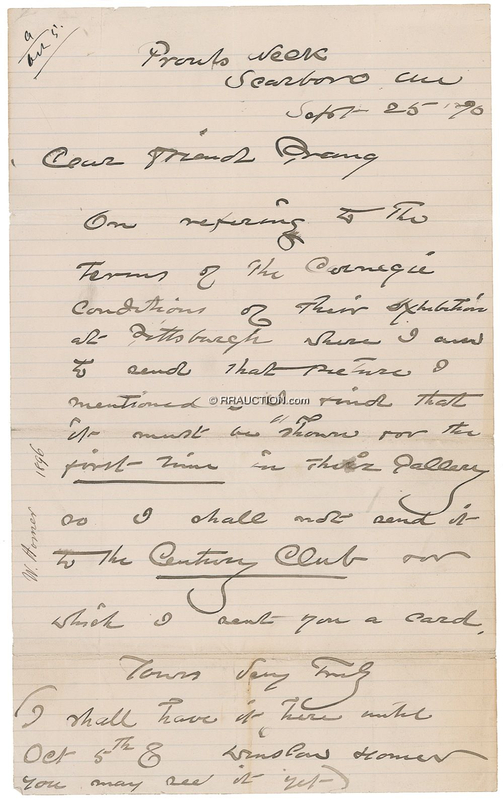 a
Oct 5.
Prouts Neck
Scarboro Me
Sept 25 1890
Dear Friend Prang
On refering to the
terms of the Carnegie
Conditions of their Exhibition
at Pittsburgh where I am
to send that picture I
mentioned I find that
© RRAUCTION.com
it must be "shown for the
first time in their Gallery
so I shall not send it
to the Century Club for
which I sent you a card.
Yours Very Truly
(I shall have it here until
Oct 5th &
Winslow Homer
you may see it yet)
W. Homer 1896